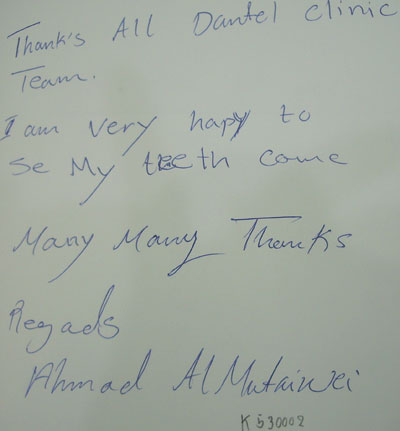 Thank's All Dantel clinic
Team.
I am very happy to
se My teeth come
Many Many Thanks
Regads
Ahmad Al Mutairei
K 530002